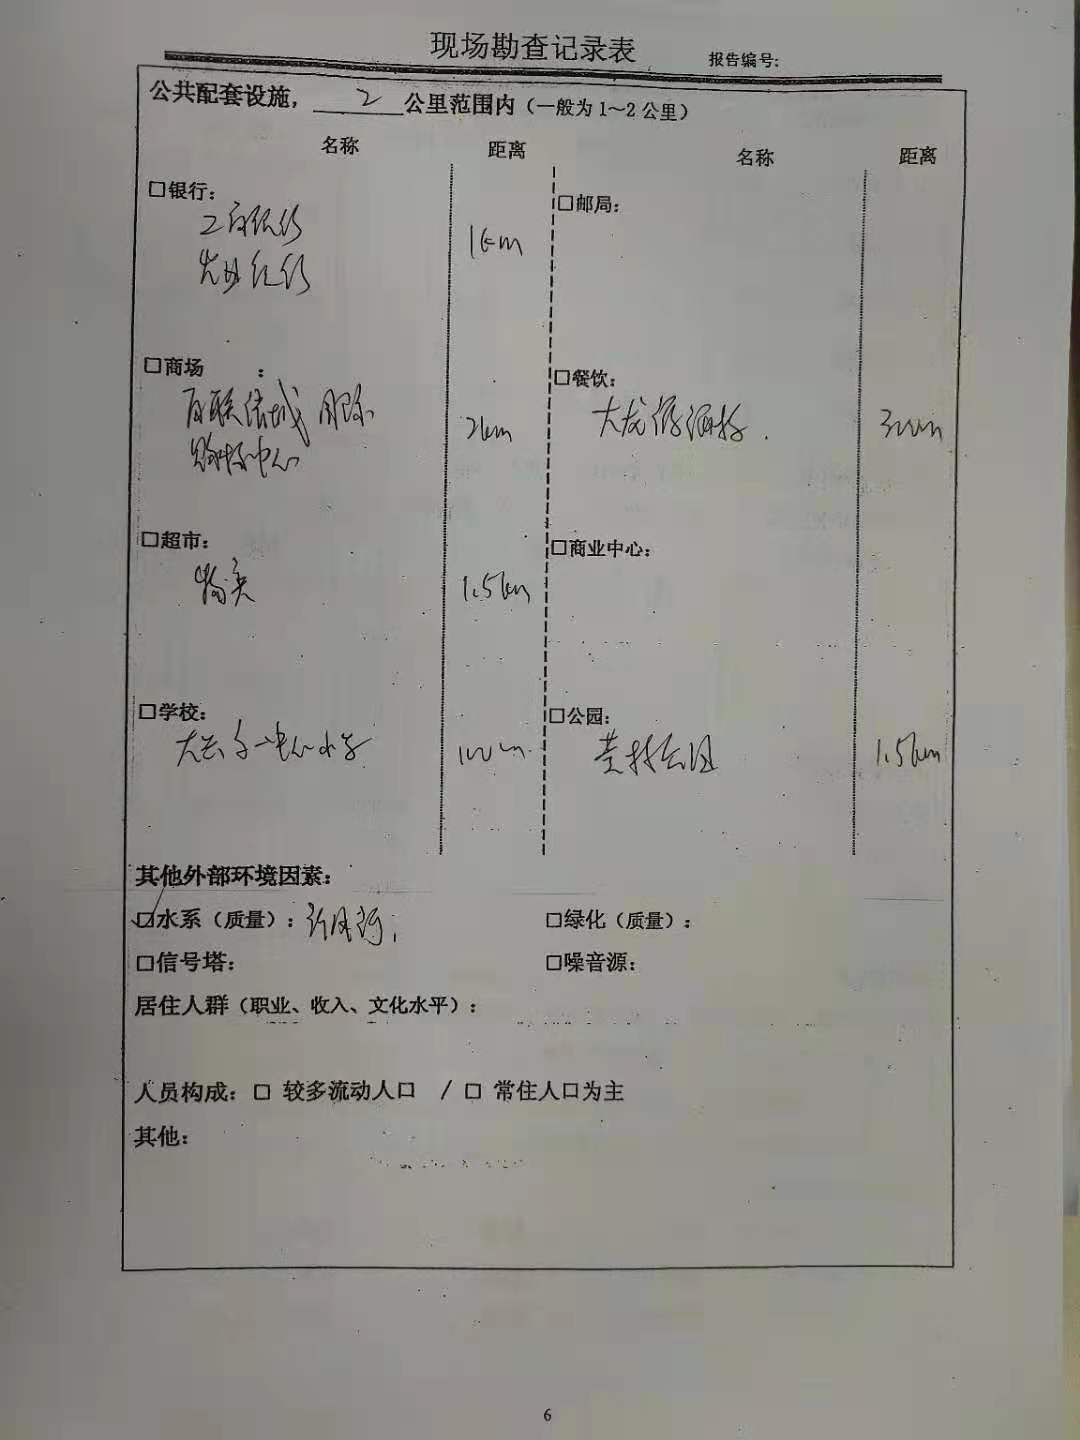 现场勘查记录表
报告编号:
公共配套设施， 2 公里范围内（一般为 1～2 公里）
名称 距离 名称 距离
□银行：
□邮局：
1km
□商场 ：
□餐饮：
2km
购物中心
300m
□超市：
□商业中心：
1.5km
□学校：
□公园：
中心小学
100m
公园
1.5km
其他外部环境因素：
☑水系（质量）： □绿化（质量）：
□信号塔： □噪音源：
居住人群（职业、收入、文化水平）：
人员构成：□ 较多流动人口 / □ 常住人口为主
其他：
6